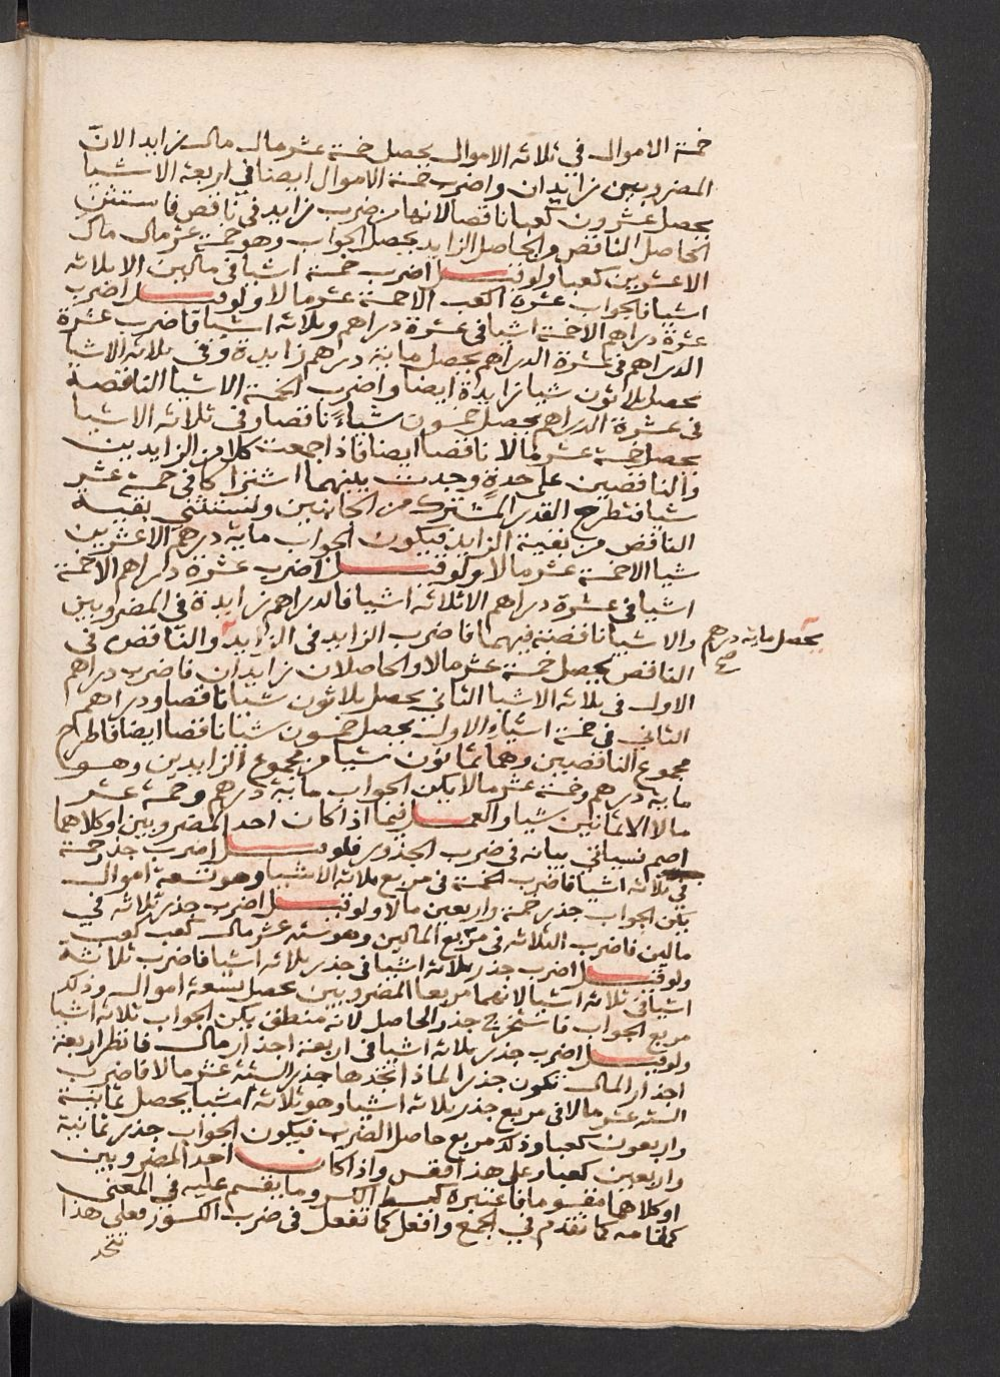 خمسة الاموال في ثلاثة الاموال يحصل خمسة عشر مال مال زايد الان
المضروبين زايدان واضرب خمسة الاموال ايضا في اربعة الاشيا
يحصل عشرون كعبا ناقصا لانها من ضرب زايد في ناقص فاستثن
الحاصل الناقص والحاصل الزايد يحصل الجواب وهو خمسة عشر مال مال
الا عشرين كعبا ولو قيل اضرب خمسة اشيا في مالين الا ثلاثة
اشيا فالجواب عشرة اكعب الا خمسة عشر مالا ولو قيل اضرب
عشرة دراهم الا خمسة اشيا في عشرة دراهم وثلاثة اشيا فاضرب عشرة
الدراهم في عشرة الدراهم يحصل ماية درهم زايدة وفي ثلاثة الاشيا
يحصل ثلاثون شيا زايدة ايضا واضرب الخمسة الاشيا الناقصة
في عشرة الدراهم يحصل خمسون شياء ناقصا وفي ثلاثة الاشيا
يحصل خمسة عشر مالا ناقصا ايضا فاذا جمعت كلا من الزايدين
والناقصين على حدة وجدت بينهما اشتراكا في خمسة عشر
شيا فتطرح القدر المشترك من الجانبين وتستثني بقية
الناقص من بقية الزايد فيكون الجواب ماية درهم الا عشرين
شيا الا خمسة عشر مالا ولو قيل اضرب عشرة دراهم الا خمسة
اشيا في عشرة دراهم الا ثلاثة اشيا فالدراهم زايدة في المضروبين
والاشيا ناقصة فيهما فاضرب الزايد في الزايد والناقص في
يحصل ماية درهم صح
الناقص يحصل خمسة عشر مالا والحاصلان زايدان فاضرب دراهم
الاول في ثلاثة الاشيا الثاني يحصل ثلاثون شيا ناقصا ودراهم
الثاني في خمسة اشياء الاول يحصل خمسون شيا ناقصا ايضا فاطرح
مجموع الناقصين وهما ثمانون شيا من مجموع الزايدين وهو
ماية درهم وخمسة عشر مالا يكن الجواب ماية درهم وخمسة عشر
مالا الا ثمانين شيا والعمل فيما اذا كان احد المضروبين او كلاهما
اصم فسياتي بيانه في ضرب الجذور فلو قيل اضرب جذر خمسة
في ثلاثة اشيا فاضرب الخمسة في مربع ثلاثة الاشيا وهو تسعة اموال
يكن الجواب جذر خمسة واربعين مالا ولو قيل اضرب جذر ثلاثة في
مالين فاضرب الثلاثة في مربع المالين وهو ستة عشر مال كعب كعب
ولو قيل اضرب جذر ثلاثة اشيا في جذر ثلاثة اشيا فاضرب ثلاثة
اشيا في ثلاثة اشيا لانهما مربعا المضروبين يحصل تسعة اموال وذلك
مربع الجواب فاستخرج جذر الحاصل لانه منطق يكن الجواب ثلاثة اشيا
ولو قيل اضرب جذر ثلاثة اشيا في اربعة اجذار مال فانظر اربعة
اجذار المال تكون جذرا لماذا تجدها جذر الستة عشر مالا فاضرب
الستة عشر مالا في مربع جذر ثلاثة اشيا وهو ثلاثة اشيا يحصل ثمانية
واربعون كعبا وذلك مربع حاصل الضرب فيكون الجواب جذر ثمانية
واربعين كعبا وعلى هذا فقس واذا كان احد المضروبين
او كلاهما مقسوما فاعتبره كبسط الكسر وما يقسم عليه في المعنى
كمقامه كما تقدم في الجمع وافعل كما تفعل في ضرب الكسور فعلى هذا